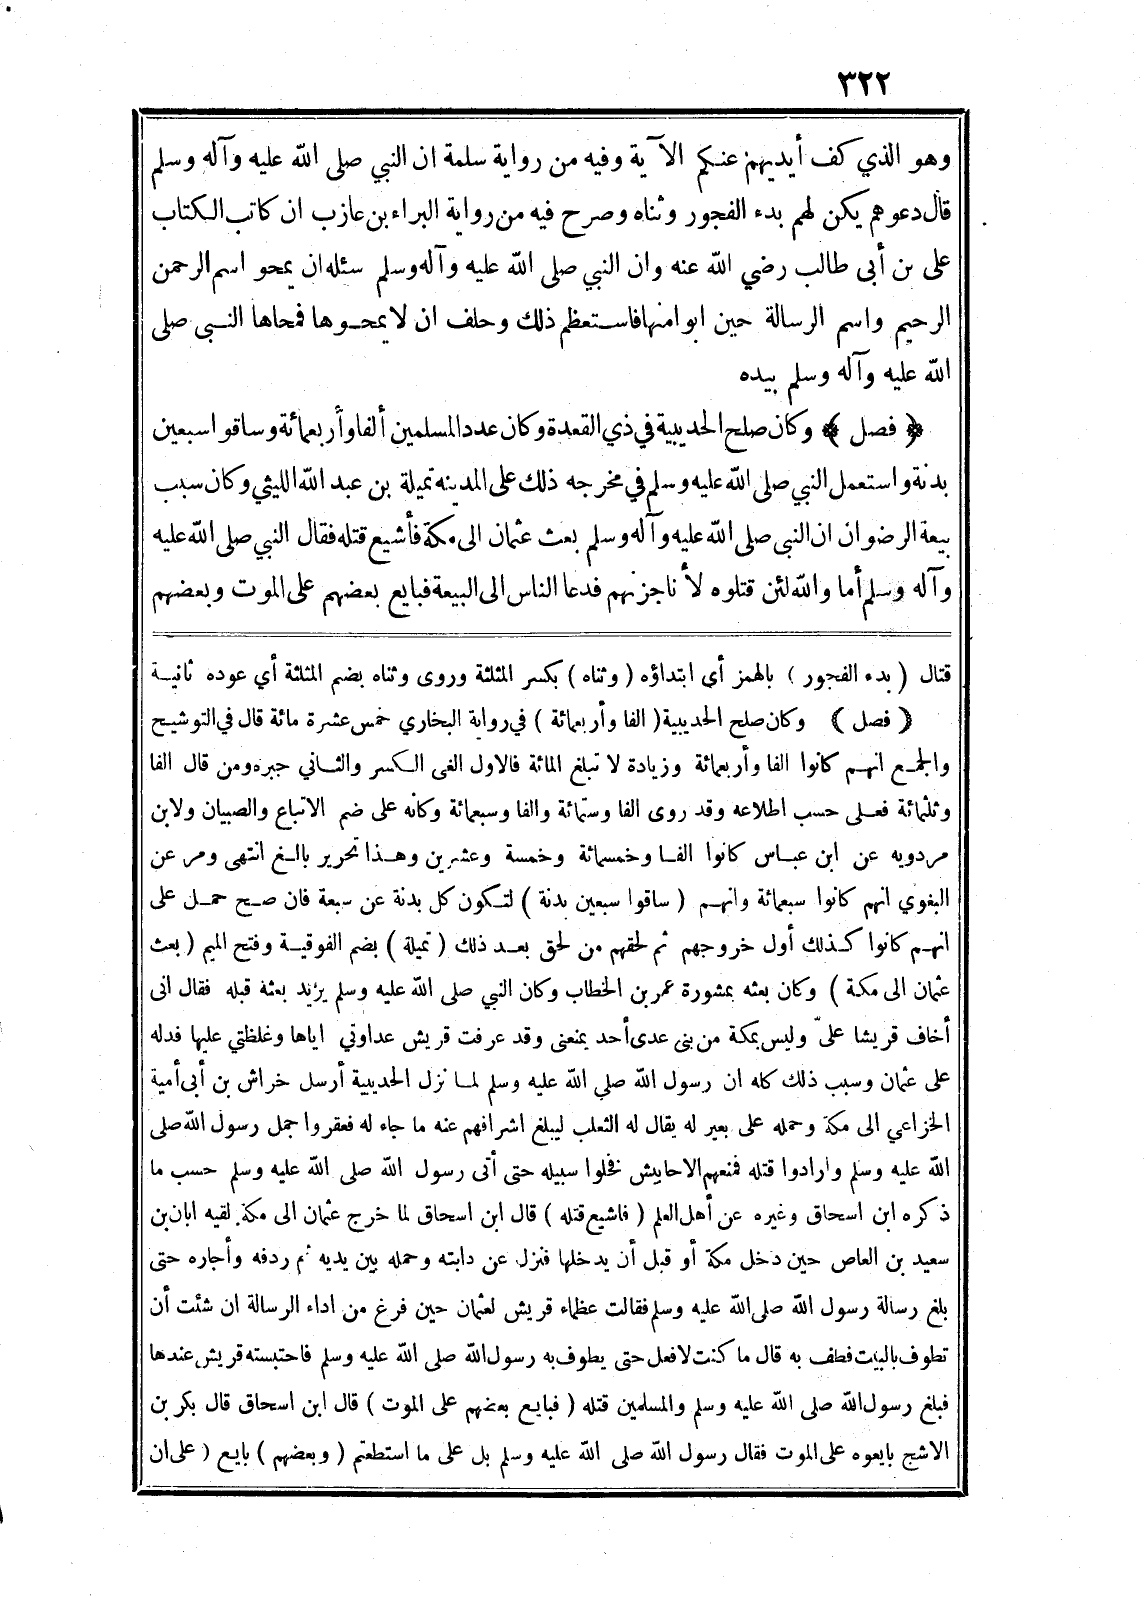 ٣٢٢
وهو الذي كف أيديهم عنكم الآية وفيه من رواية سلمة ان النبي صلى الله عليه وآله وسلم
قال دعوهم يكن لهم بدء الفجور وثناه وصرح فيه من رواية البراء بن عازب ان كاتب الكتاب
على بن أبى طالب رضي الله عنه وان النبي صلى الله عليه وآله وسلم سئله ان يمحو اسم الرحمن
الرحيم واسم الرسالة حين ابوا منها فاستعظم ذلك وحلف ان لا يمحوها فمحاها النبى صلى
الله عليه وآله وسلم بيده
﴿ فصل ﴾ وكان صلح الحديبية في ذي القعدة وكان عدد المسلمين ألفا وأربعمائة وساقوا سبعين
بدنة واستعمل النبي صلى الله عليه وسلم في مخرجه ذلك على المدينه تميلة بن عبد الله الليثي وكان سبب
بيعة الرضوان ان النبى صلى الله عليه وآله وسلم بعث عثمان الى مكة فأشيع قتله فقال النبي صلى الله عليه
وآله وسلم أما والله لئن قتلوه لأناجزنهم فدعا الناس الى البيعة فبايع بعضهم على الموت وبعضهم
قتال ( بدء الفجور ) بالهمز أى ابتداؤه ( وثناه ) بكسر المثلثة وروى وثناه بضم المثلثة أي عوده ثانية
﴿ فصل ﴾ وكان صلح الحديبية ( الفا وأربعمائة ) في رواية البخاري خمس عشرة مائة قال في التوشيح
والجمع انهم كانوا الفا وأربعمائة وزيادة لا تبلغ المائة فالاول الغى الكسر والثاني جبره ومن قال الفا
وثلثمائة فعلى حسب اطلاعه وقد روى الفا وستمائة والفا وسبعمائة وكانه على ضم الاتباع والصبيان ولابن
مردويه عن ابن عباس كانوا الفا وخمسمائة وخمسة وعشرين وهذا تحرير بالغ انتهى ومر عن
البغوي انهم كانوا سبعمائة وانهم ( ساقوا سبعين بدنة ) لتكون كل بدنة عن سبعة فان صح حمل على
انهم كانوا كذلك أول خروجهم ثم لحقهم من لحق بعد ذلك ( تميلة ) بضم الفوقية وفتح الميم ( بعث
عثمان الى مكة ) وكان بعثه بمشورة عمر بن الخطاب وكان النبي صلى الله عليه وسلم يزيد بعثه قبله فقال انى
أخاف قريشا علىّ وليس بمكة من بنى عدى أحد يمنعنى وقد عرفت قريش عداوتي اياها وغلظتي عليها فدله
على عثمان وسبب ذلك كله ان رسول الله صلى الله عليه وسلم لما نزل الحديبية أرسل خراش بن أبى أمية
الخزاعي الى مكة وحمله على بعير له يقال له الثعلب ليبلغ اشرافهم عنه ما جاء له فعقروا جمل رسول الله صلى
الله عليه وسلم وارادوا قتله فمنعهم الاحابيش فخلوا سبيله حتى أتى رسول الله صلى الله عليه وسلم حسب ما
ذكره ابن اسحاق وغيره عن أهل العلم ( فاشيع قتله ) قال ابن اسحاق لما خرج عثمان الى مكة لقيه ابان بن
سعيد بن العاص حين دخل مكة أو قبل أن يدخلها فنزل عن دابته وحمله بين يديه ثم ردفه وأجاره حتى
بلغ رسالة رسول الله صلى الله عليه وسلم فقالت عظماء قريش لعثمان حين فرغ من اداء الرسالة ان شئت أن
تطوف بالبيت فطف به قال ما كنت لافعل حتى يطوف به رسول الله صلى الله عليه وسلم فاحتبسته قريش عندها
فبلغ رسول الله صلى الله عليه وسلم والمسلمين قتله ( فبايع بعضهم على الموت ) قال ابن اسحاق قال بكر بن
الاشج بايعوه على الموت فقال رسول الله صلى الله عليه وسلم بل على ما استطعتم ( وبعضهم ) بايع ( على ان